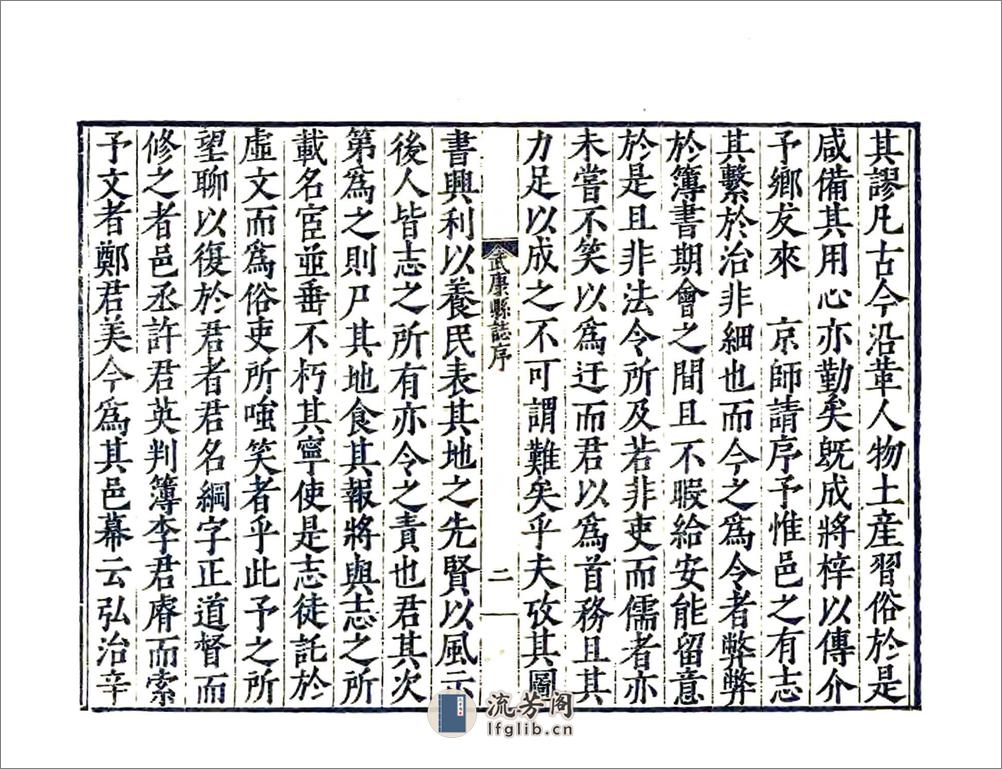 其謬凡古今沿革人物土産習俗於是
咸備其用心亦勤矣既成將梓以傳介
予鄉友來　京師請序予惟邑之有志
其繫於治非細也而今之爲令者弊弊
於簿書期會之間且不暇給安能留意
於是且非法令所及若非吏而儒者亦
未嘗不笑以爲迂而君以爲首務且其
力足以成之不可謂難矣乎夫攷其圖
武康縣誌序
二
書興利以養民表其地之先賢以風示
後人皆志之所有亦令之責也君其次
第爲之則尸其地食其報將與志之所
載名宦並垂不朽其寧使是志徒託於
虛文而爲俗吏所嗤笑者乎此予之所
望聊以復於君者君名綱字正道督而
修之者邑丞許君英判簿李君睿而索
予文者鄭君美今爲其邑幕云弘治辛
流芳阁
lfglib.cn